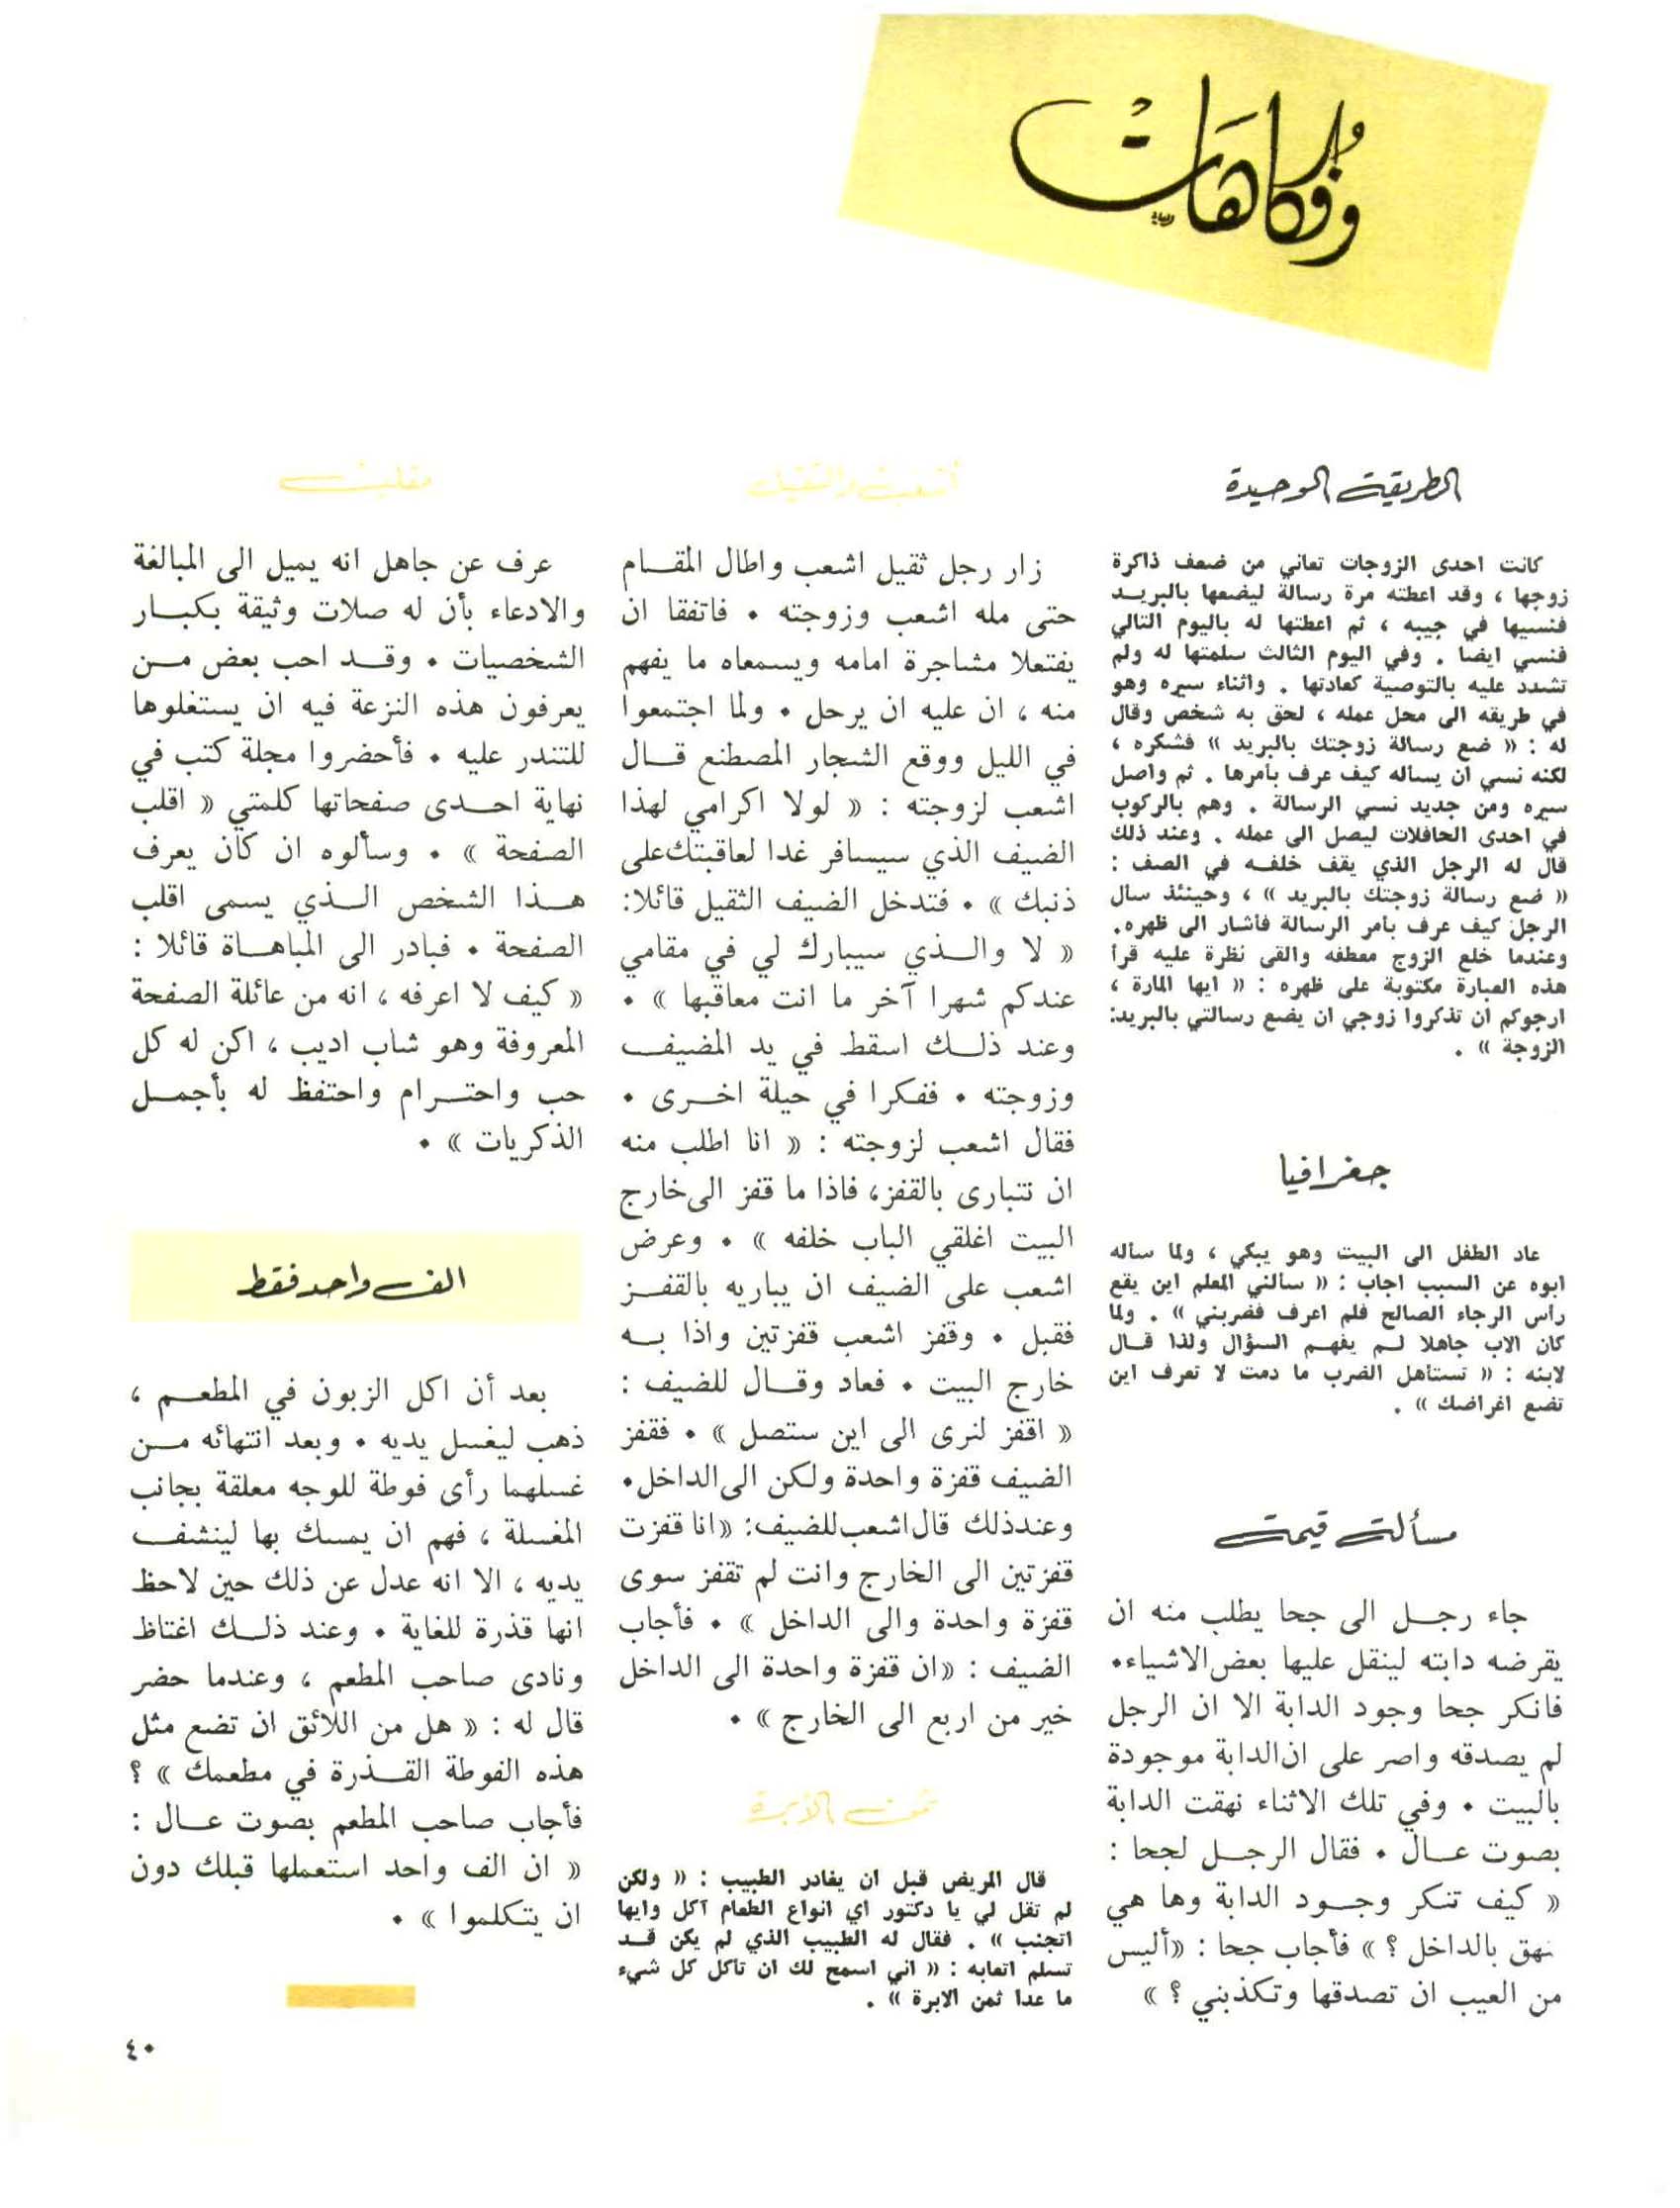 وفكاهات
الطريقة الوحيدة
كانت احدى الزوجات تعاني من ضعف ذاكرة
زوجها ، وقد اعطته مرة رسالة ليضعها بالبريـد
فنسيها في جيبه ، ثم اعطتها له باليوم التالي
فنسي ايضا . وفي اليوم الثالث سلمتها له ولم
تشدد عليه بالتوصية كعادتها . واثناء سيره وهو
في طريقه الى محل عمله ، لحق به شخص وقال
له : « ضع رسالة زوجتك بالبريد » فشكره ،
لكنه نسي ان يسأله كيف عرف بأمرها . ثم واصل
سيره ومن جديد نسي الرسالة . وهم بالركوب
في احدى الحافلات ليصل الى عمله . وعند ذلك
قال له الرجل الذي يقف خلفـه في الصف :
« ضع رسالة زوجتك بالبريد » ، وحينئذ سأل
الرجل كيف عرف بأمر الرسالة فأشار الى ظهره.
وعندما خلع الزوج معطفه والقى نظرة عليه قرأ
هذه العبارة مكتوبة على ظهره : « ايها المارة ،
ارجوكم ان تذكروا زوجي ان يضع رسالتي بالبريد:
الزوجة » .
جغرافيا
عاد الطفل الى البيت وهو يبكي ، ولما سأله
ابوه عن السبب اجاب : « سألني المعلم اين يقع
رأس الرجاء الصالح فلم اعرف فضربني » . ولما
كان الاب جاهلا لـم يفهـم السؤال ولذا قـال
لابنه : « تستاهل الضرب ما دمت لا تعرف اين
تضع اغراضك » .
مسألة قيمة
جاء رجـل الى جحا يطلب منه ان
يقرضه دابته لينقل عليها بعض الاشياء.
فانكر جحا وجود الدابة الا ان الرجل
لم يصدقه واصر على ان الدابة موجودة
بالبيت . وفي تلك الاثناء نهقت الدابة
بصوت عـال . فقال الرجـل لجحا :
« كيف تنكر وجـود الدابة وها هي
نهق بالداخل ؟ » فأجاب جحا : «أليس
من العيب ان تصدقها وتكذبني ؟ »
أشعب والثقيل
زار رجل ثقيل اشعب واطال المقـام
حتى مله اشعب وزوجته . فاتفقا ان
يفتعلا مشاجرة امامه ويسمعاه ما يفهم
منه ، ان عليه ان يرحل . ولما اجتمعوا
في الليل ووقع الشجار المصطنع قـال
اشعب لزوجته : « لولا اكرامي لهذا
الضيف الذي سيسافر غدا لعاقبتك على
ذنبك » . فتدخل الضيف الثقيل قائلا:
« لا والـذي سيبارك لي في مقامي
عندكم شهرا آخر ما انت معاقبها » .
وعند ذلـك اسقط في يد المضيف
وزوجته . ففكرا في حيلة اخـرى .
فقال اشعب لزوجته : « انا اطلب منه
ان نتبارى بالقفز، فاذا ما قفز الى خارج
البيت اغلقي الباب خلفه » . وعرض
اشعب على الضيف ان يباريه بالقفـز
فقبل . وقفز اشعب قفزتين واذا بـه
خارج البيت . فعاد وقـال للضيف :
« اقفز لنرى الى اين ستصل » . فقفز
الضيف قفزة واحدة ولكن الى الداخل.
وعندذلك قال اشعب للضيف: «انا قفزت
قفزتين الى الخارج وانت لم تقفز سوى
قفزة واحدة والى الداخل » . فأجاب
الضيف : «ان قفزة واحدة الى الداخل
خير من اربع الى الخارج » .
ثمن الإبرة
قال المريض قبل ان يغادر الطبيب : « ولكن
لم تقل لي يا دكتور اي انواع الطعام آكل وايها
اتجنب » . فقال له الطبيب الذي لم يكن قـد
تسلم اتعابه : « اني اسمح لك ان تأكل كل شيء
ما عدا ثمن الابرة » .
عرف عن جاهل انه يميل الى المبالغة
والادعاء بأن له صلات وثيقة بكبـار
الشخصيات . وقـد احب بعض مـن
يعرفون هذه النزعة فيه ان يستغلوها
للتندر عليه . فأحضروا مجلة كتب في
نهاية احـدى صفحاتها كلمتي « اقلب
الصفحة » . وسألوه ان كان يعرف
هـذا الشخص الـذي يسمى اقلب
الصفحة . فبادر الى المباهـاة قائلا :
« كيف لا اعرفه ، انه من عائلة الصفحة
المعروفة وهو شاب اديب ، اكن له كل
حب واحتـرام واحتفظ له بأجمـل
الذكريات » .
الف واحد فقط
بعد أن اكل الزبون في المطعـم ،
ذهب ليغسل يديه . وبعد انتهائه مـن
غسلهما رأى فوطة للوجه معلقة بجانب
المغسلة ، فهم ان يمسك بها لينشف
يديه ، الا انه عدل عن ذلك حين لاحظ
انها قذرة للغاية . وعند ذلـك اغتاظ
ونادى صاحب المطعم ، وعندما حضر
قال له : « هل من اللائق ان تضع مثل
هذه الفوطة القـذرة في مطعمك » ؟
فأجاب صاحب المطعم بصوت عـال :
« ان الف واحد استعملها قبلك دون
ان يتكلموا » .
٤٠